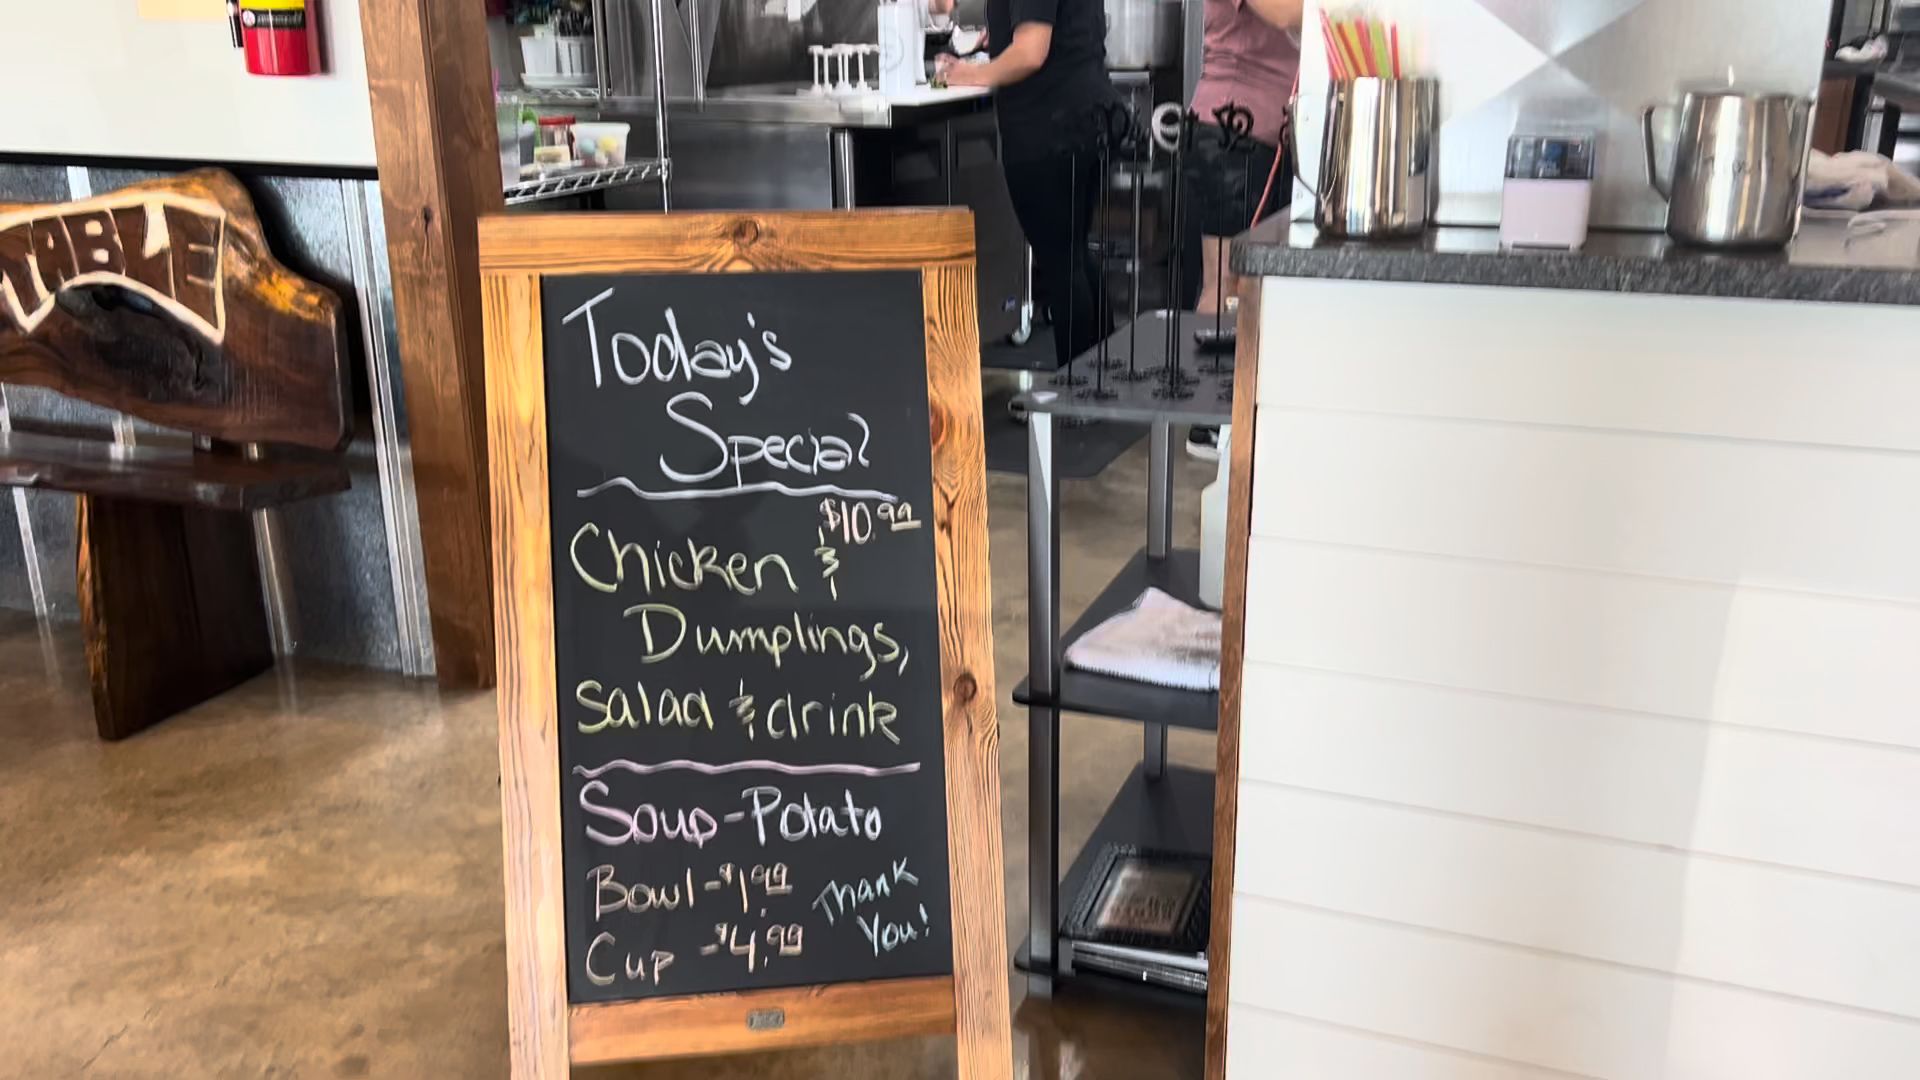 TABLE
Today's
Special
$10.99
Chicken &
Dumplings,
Salad & drink
Soup-Potato
Bowl-$1.99
Cup -$4.99
Thank
You!